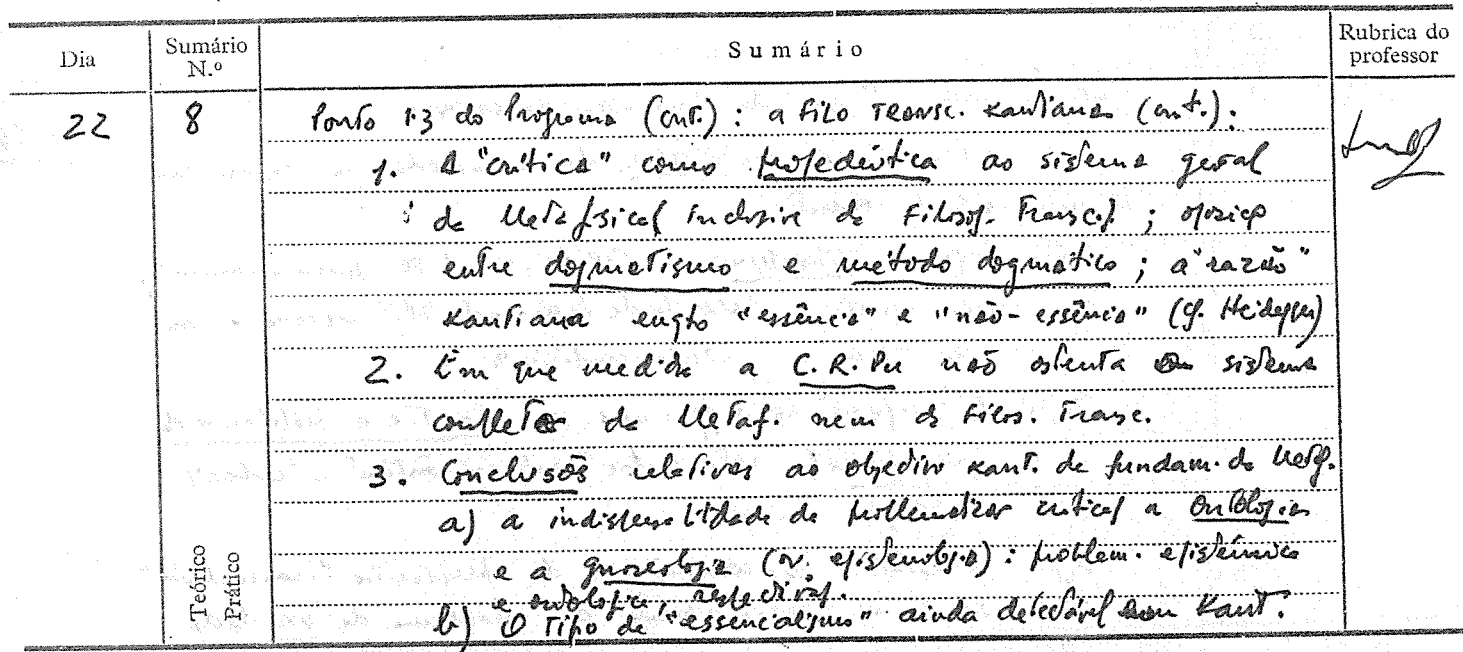 Dia
Sumário N.º
Sumário
Rubrica do professor
22
8
Ponto 1.3 do Programa (cont.) : a filo transc. kantiana (cont.).
1. A "crítica" como propedêutica ao sistema geral
da Metafísica (inclusive da Filosof. Transc.) ; oposição
entre dogmatismo e método dogmático ; a "razão"
kantiana enqto "essência" e "não-essência" (cf. Heidegger)
2. Em que medida a C. R. Pu não ostenta sistema
completo da Metaf. nem da Filos. Transc.
3. Conclusões relativas ao objectivo kant. de fundam. da Metaf.
a) a indispensabilidade de problematizar critica/ a Ontologia
e a gnoseologia (v. epistemologia) : problem. epistémica
e ontológica, respectiva/.
b) O tipo de "essencialismo" ainda detectável em Kant.
Teórico
Prático